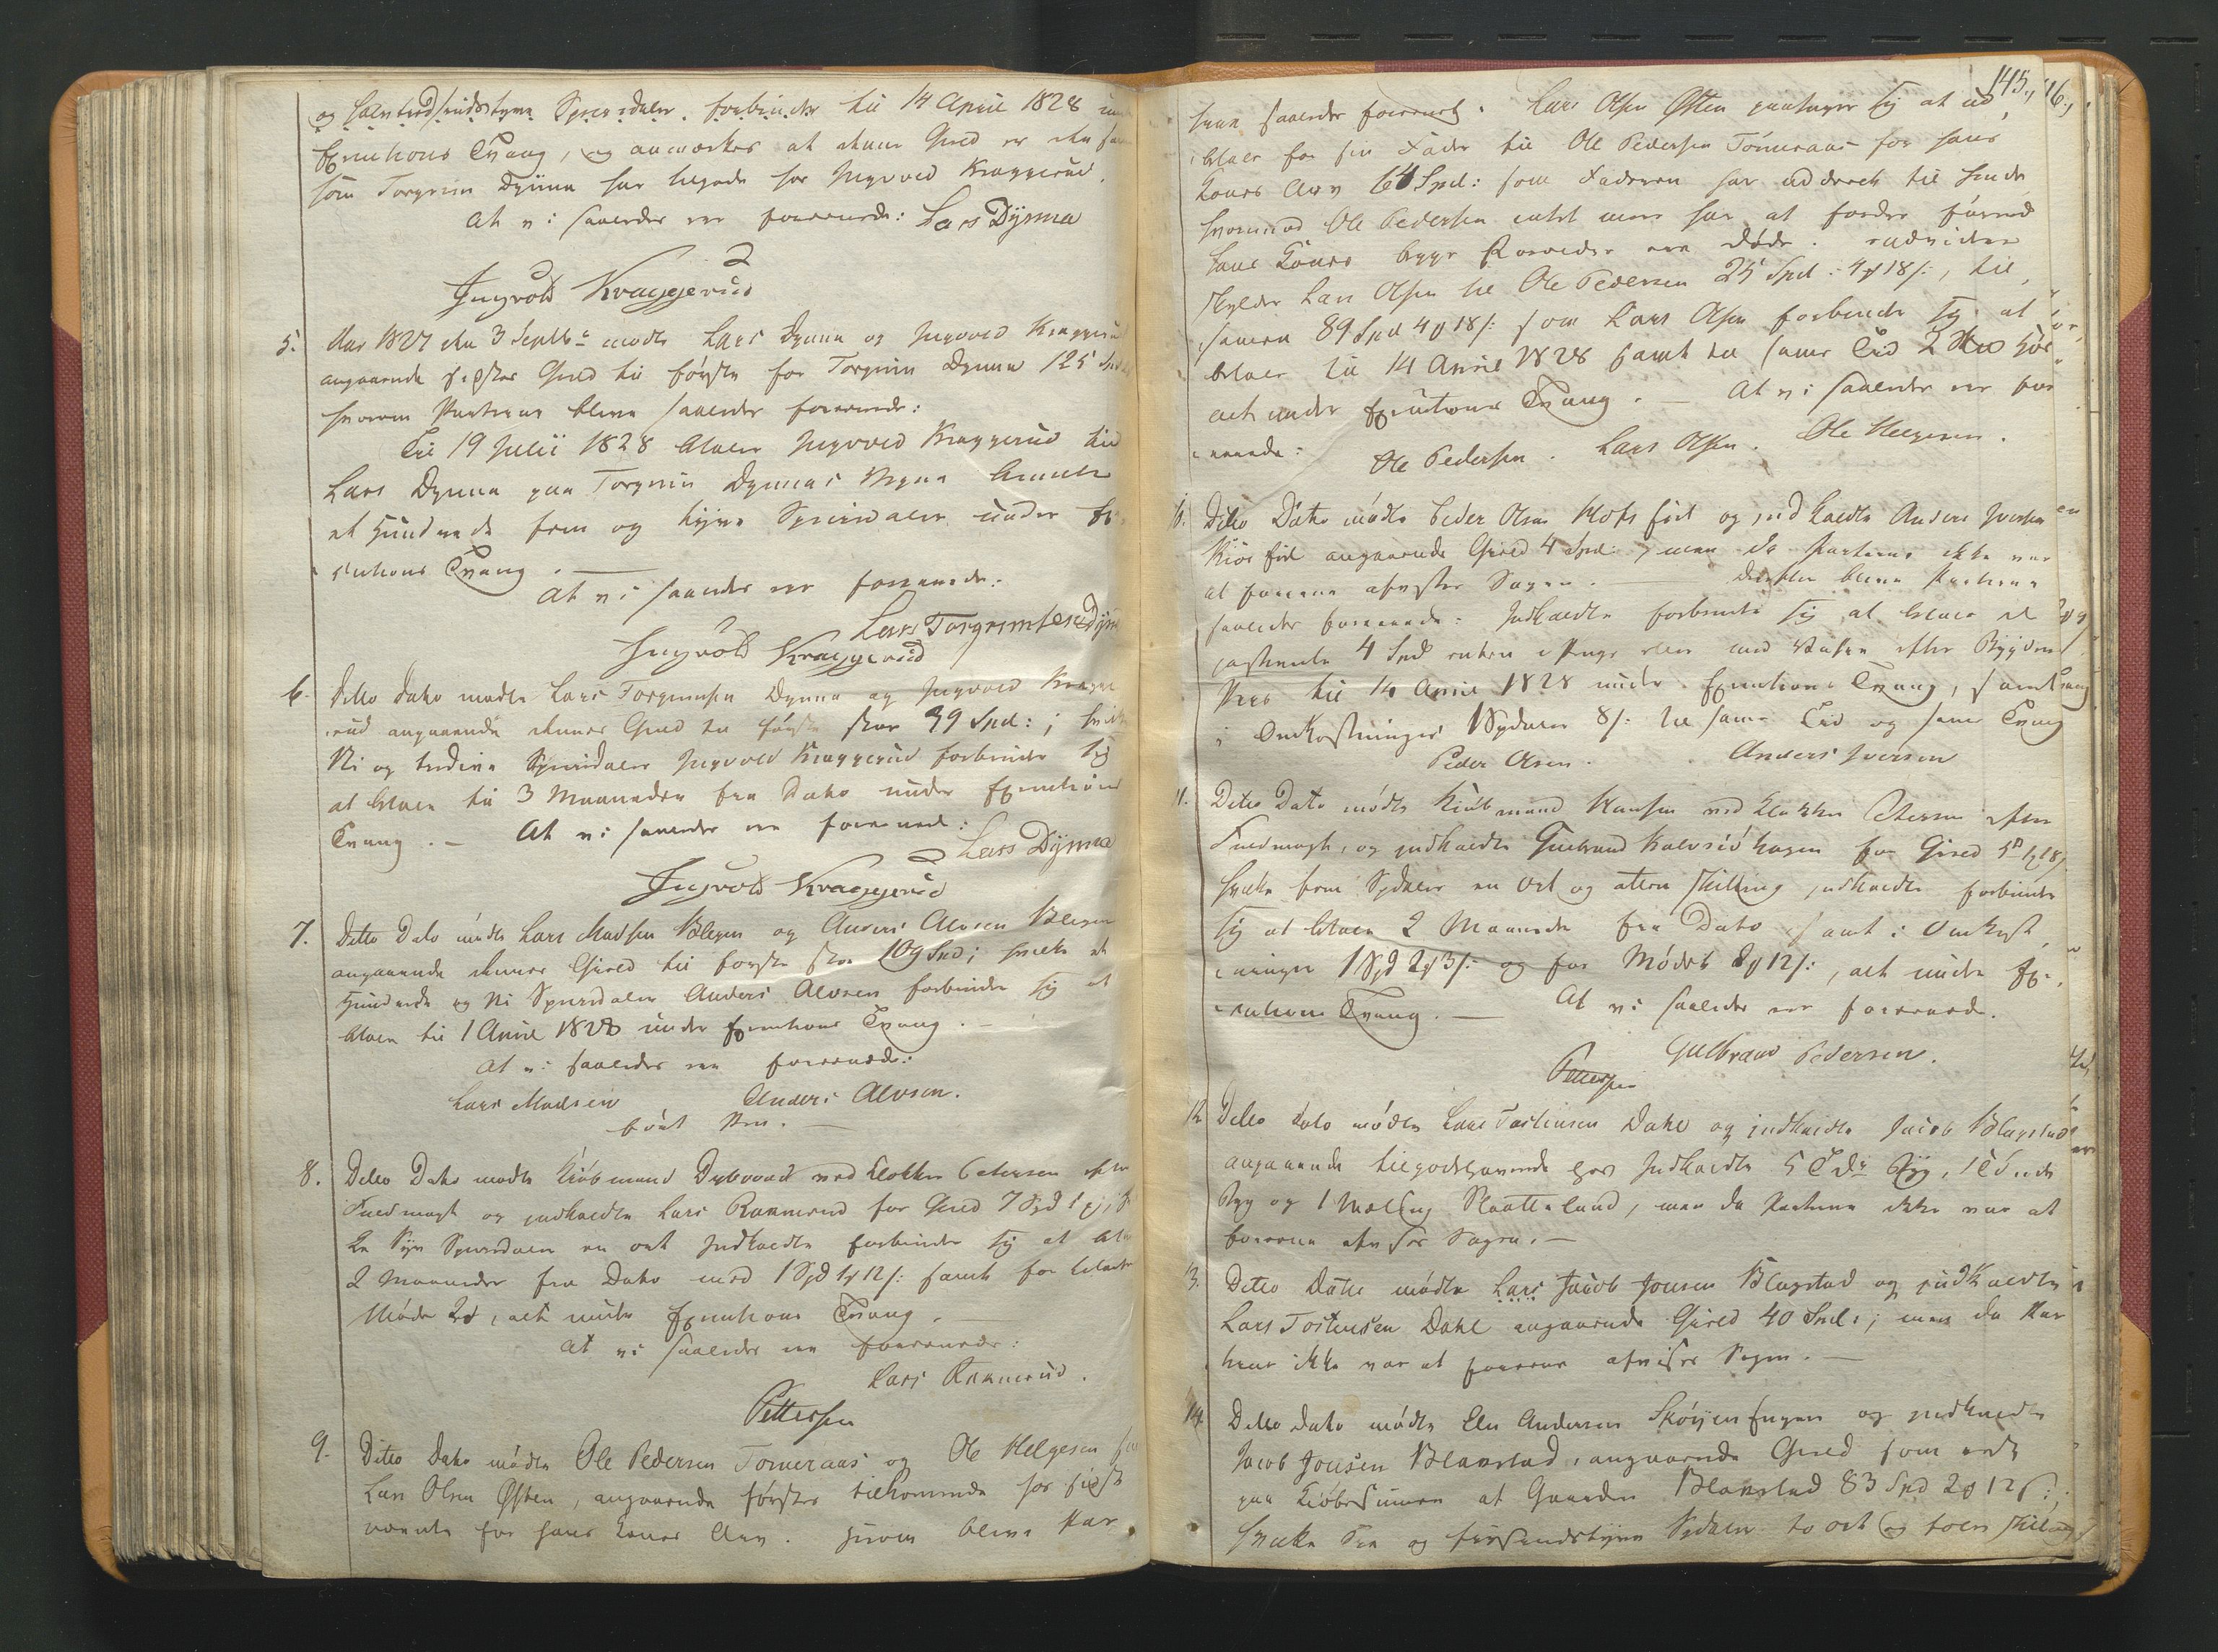 og halvtredsindstyve Speciesdaler forbinder til 14 April 1828 under
Executions Tvang, og anmærkes at denne Gield er den samme
som Torgrim Dynna har lovede for Ingvold Kraggerud.
At vi saaledes ere forenede: Lars Dynna
Ingvold Kraggerud
5. Aar 1827 den 3 Septbr mødte Lars Dynna og Ingvold Kraggerud
angaaende sidstes Gield til første for Torgrim Dynna 125 Spd
hvorom Parterne bleve saaledes forenede:
Til 19 Julii 1828 betaler Ingvold Kraggerud til
Lars Dynna paa Torgrim Dynnas Vegne
et Hundrede fem og tyve Speciesdaler under Exe-
cutions Tvang.
At vi saaledes ere forenede:
Lars Torgrimsen Dynna
Ingvold Kraggerud
6. Ditto Dato mødte Lars Torgrimsen Dynna og Ingvold Kragge-
rud angaaende dennes Gield til første stor 39 Spd:; hvilke
Ni og tredive Speciesdaler Ingvold Kraggerud forbinder sig
at betale til 3 Maaneder fra Dato under Executions
Tvang. – At vi saaledes ere forenede:
Lars Dynna
Ingvold Kraggerud
7. Ditto Dato mødte Lars Madsen Blegen og Anders Alvsen Blegen
angaaende dennes Gield til første stor 109 Spd; hvilke et
Hundrede og Ni Speciesdaler Anders Alvsen forbinder sig at
betale til 1 April 1828 under Executions Tvang. –
At vi saaledes ere forenede:
Lars Madsen Anders Alvsen.
ført Pen.
8. Ditto Dato mødte Kiøbmand Dybvad ved Klokker Petersen efter
Fuldmagt og indkaldte Lars Rammerud for Gield 7 Spd 1
Speciesdaler en ort Indkaldte forbinder sig at betale
2 Maaneder fra Dato med 1 Spd 1 ort 12 s: samt for
Møde 2 ort, alt under Executions Tvang.
At vi saaledes ere forenede:
Lars Rammerud.
Pettersen
9. Ditto Dato mødte Ole Pedersen Tømeraas og Ole Helgesen for
Lars Olsen Østen, angaaende førstes tilkommende hos sidst-
nævnte for hans Kones Arv. Hvorom bleve Par-
145., 16.,
terne saaledes forenede: Lars Olsen Østen paatager sig at ud-
betale for sin Fader til Ole Pedersen Tømeraas for hans
Kones Arv 64 Spd: som Faderen har
hvormed Ole Pedersen intet mere har at fordre førend
hans Kones begge Forældre ere døde. endvidere
skylder Lars Olsen til Ole Pedersen 25 Spd: 4 ort 18 s:, til-
samen 89 Spd 4 ort 18 s: som Lars Olsen forbinder sig at
betale til 14 April 1828 samt til samme Tid 2
alt under Executions Tvang. – At vi saaledes ere for-
enede:
Ole Pedersen. Lars Olsen. Ole Helgesen.
10. Ditto Dato mødte Peder Olsen Kløfsfiel og indkaldte Anders Iversen
angaaende Gield 4 Spd: men da Parterne ikke var
at forene afvistes Sagen. Derefter bleve Parterne
saaledes forenede: Indkaldte forbinder sig at betale de
paastevnte 4 Spd enten i Penge eller med Varer efter Bygdens
Priis til 14 April 1828 under Executions Tvang, samt
i Omkostninger 1 Spdaler 8 s: til samme Tid og samme Tvang
Peder Olsen. Anders Iversen
11. Ditto Dato mødte Kiøbmand Hansen ved Klokker Petersen efter
Fuldmagt, og indkaldte Gulbrand Kalvsiøhagen for Gield 5 1 ort 18 s
hvilke fem Spdaler en Ort og atten skilling indkaldte forbinder
sig at betale 2 Maaneder fra Dato samt i Omkost-
ninger 1 Spd 2 ort 3 s: og for Mødet 2 ort 12 s:, alt under Exe-
cutions Tvang. – At vi saaledes ere forenede.
Gulbrand Pedersen.
Pettersen
12. Ditto Dato mødte Lars Tostensen Dahl og indkaldte Jacob Blagstad
angaaende tilgodehavende hos Indkaldte 5 Tdr Byg, 1 Tønde
Byg og 1 Mæling Slaatteland, men da Parterne ikke var at
forene afvises Sagen. –
13. Ditto Dato mødte Lars Jacob Jonsen Blagstad og indkaldte
Lars Tostensen Dahl angaaende Gield 40 Spd:; men da Par-
terne ikke var at forene afvises Sagen. –
14. Ditto Dato mødte Elen Andersen og indkaldte
Jacob Jonsen Blagstad, angaaende Gield som rest
paa Kiøbesummen at Gaarden Blagstad 83 Spd 2 ort 12 s:;
hvilke Tre og fiirsendstyve Spdaler to ort og tolv skilling